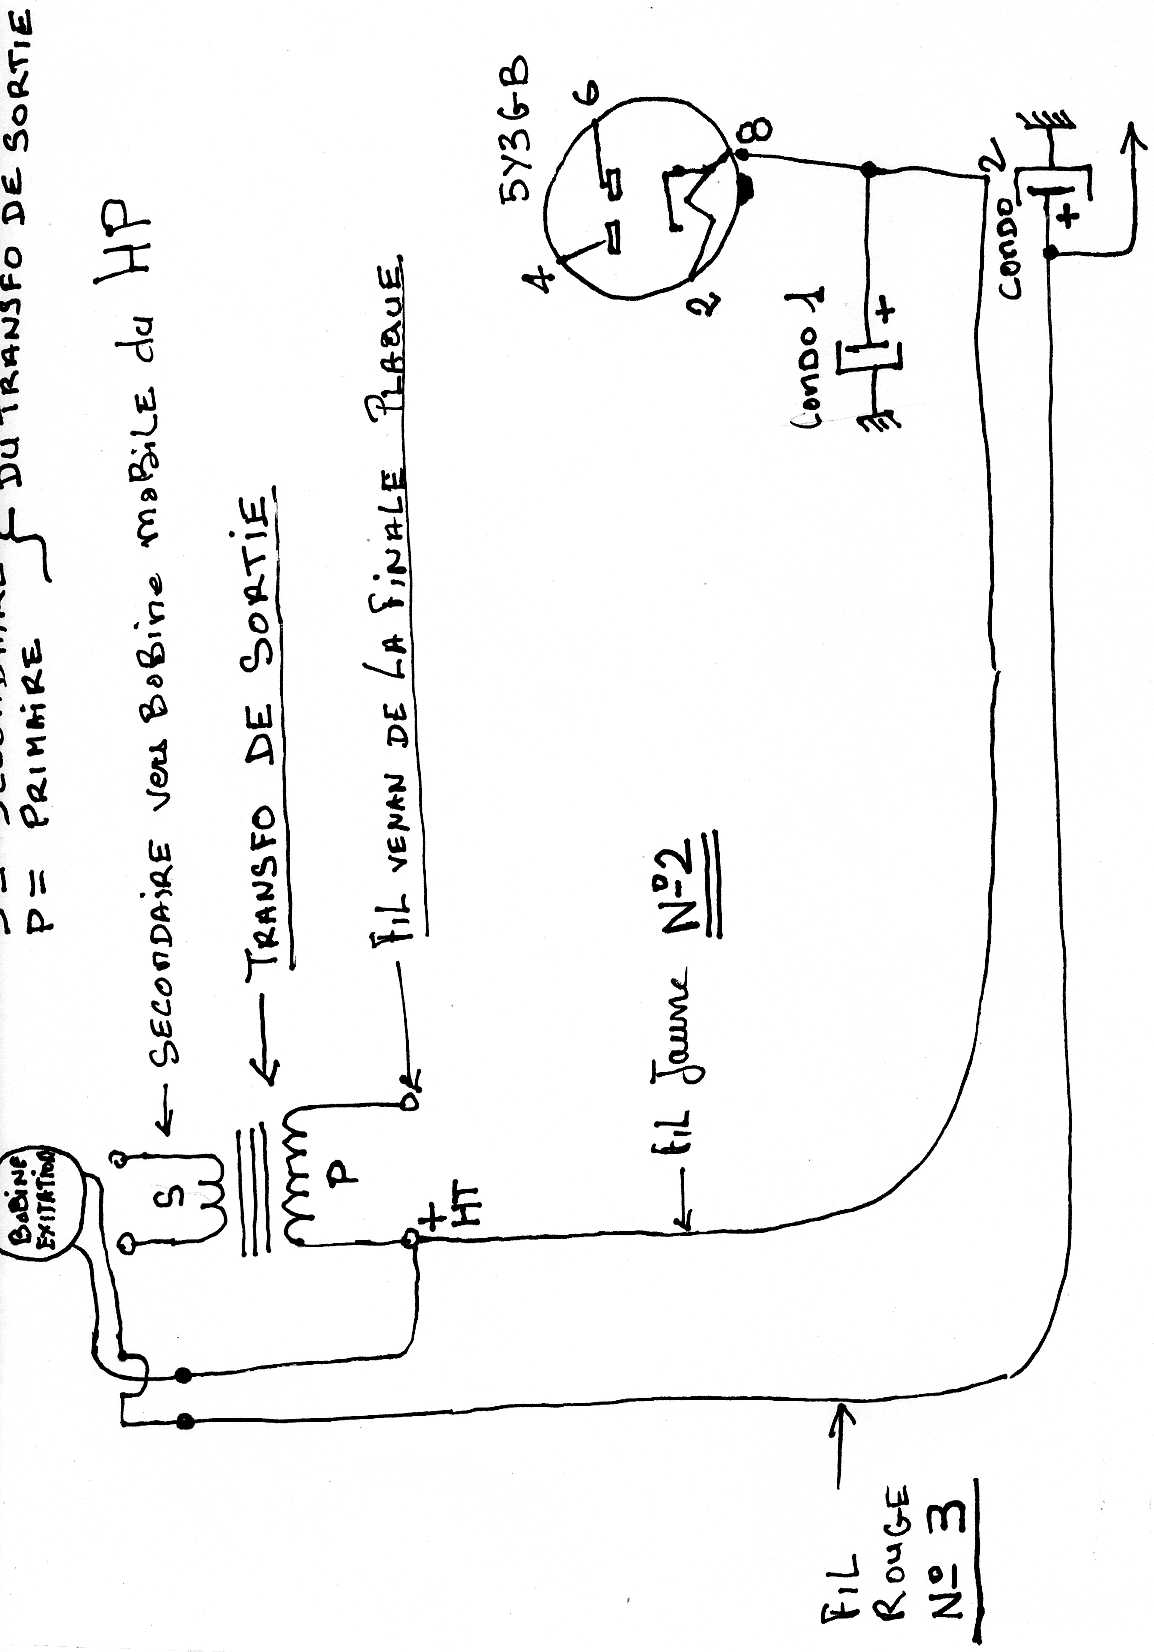 P = PRIMAIRE
DU TRANSFO DE SORTIE
BOBINE
EXITATION
SECONDAIRE vers BOBine moBiLE du HP
S
TRANSFO DE SORTIE
P
FIL VENAN DE LA FINALE PLAQUE
+
HT
FIL Jaune N°2
FIL
ROUGE
N° 3
5Y3GB
4
6
2
8
CONDO 1
+
CONDO 2
+